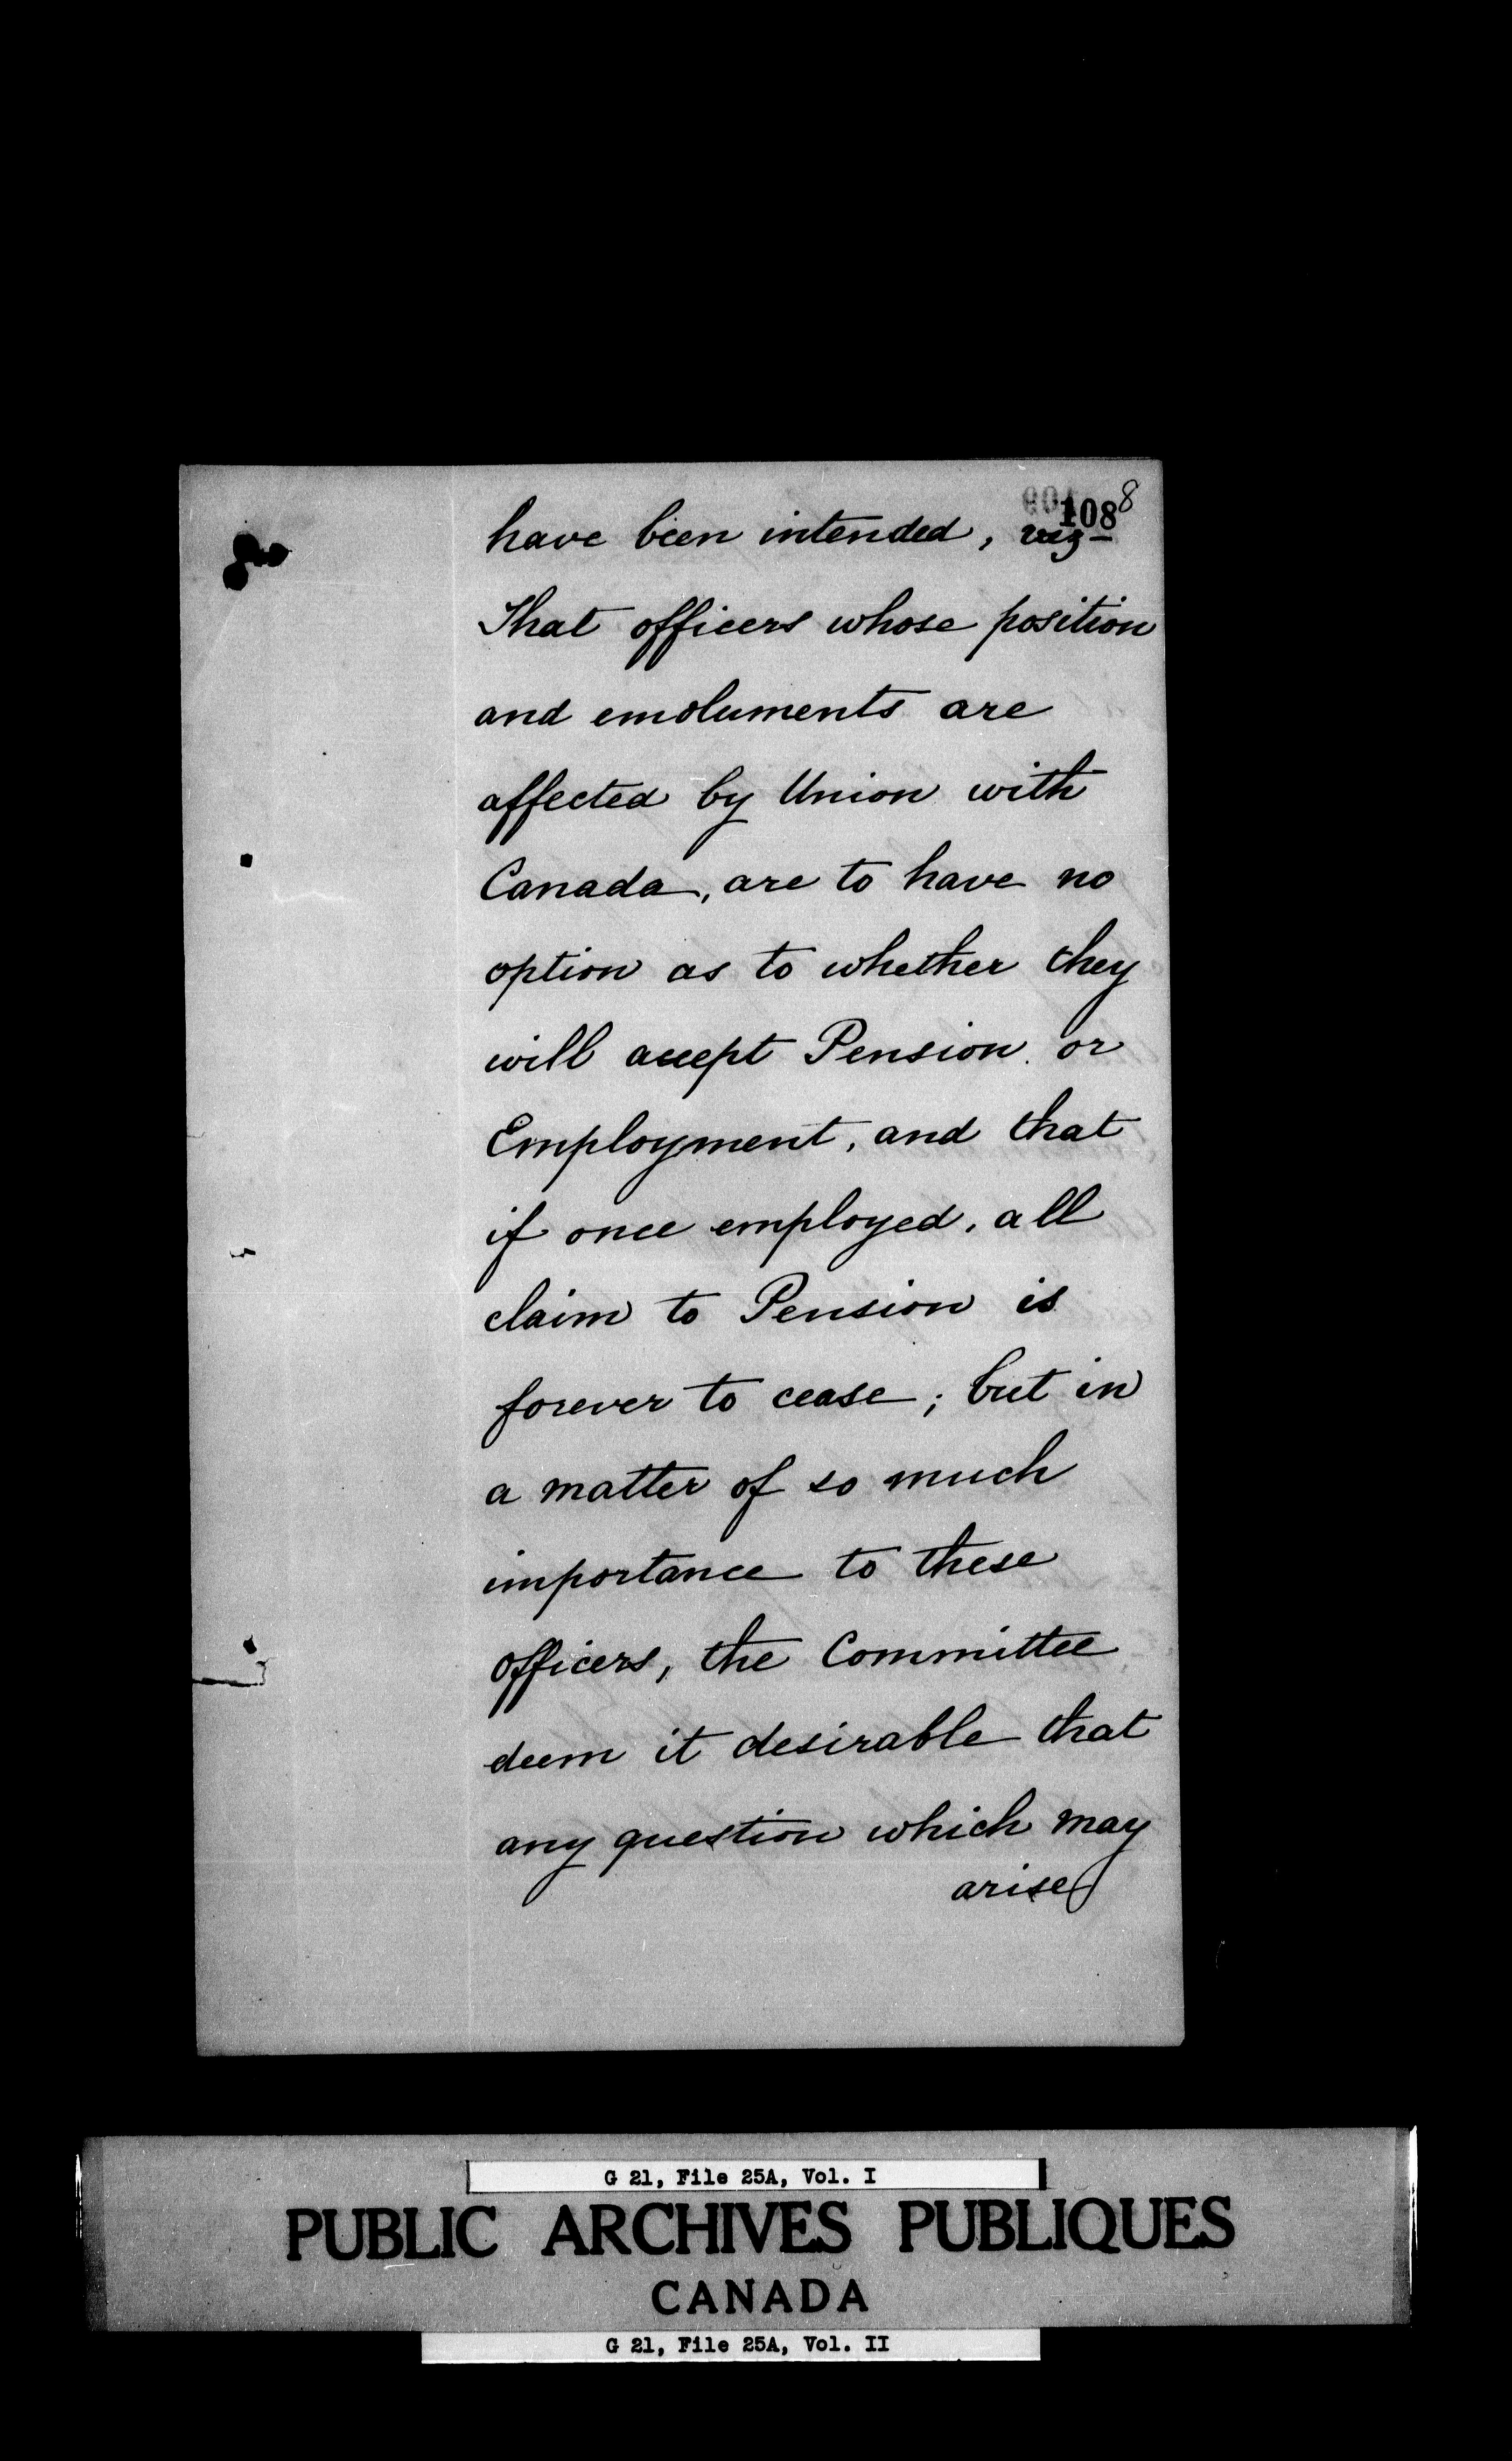 108 8
have been intended, viz—
That officers whose position
and emoluments are
affected by Union with
Canada, are to have no
option as to whether they
will accept Pension or
Employment, and that
if once employed, all
claim to Pension is
forever to cease; but in
a matter of so much
importance to these
officers, the Committee
deem it desirable that
any question which may
arise
G 21, File 25A, Vol. I
PUBLIC ARCHIVES PUBLIQUES
CANADA
G 21, File 25A, Vol. II